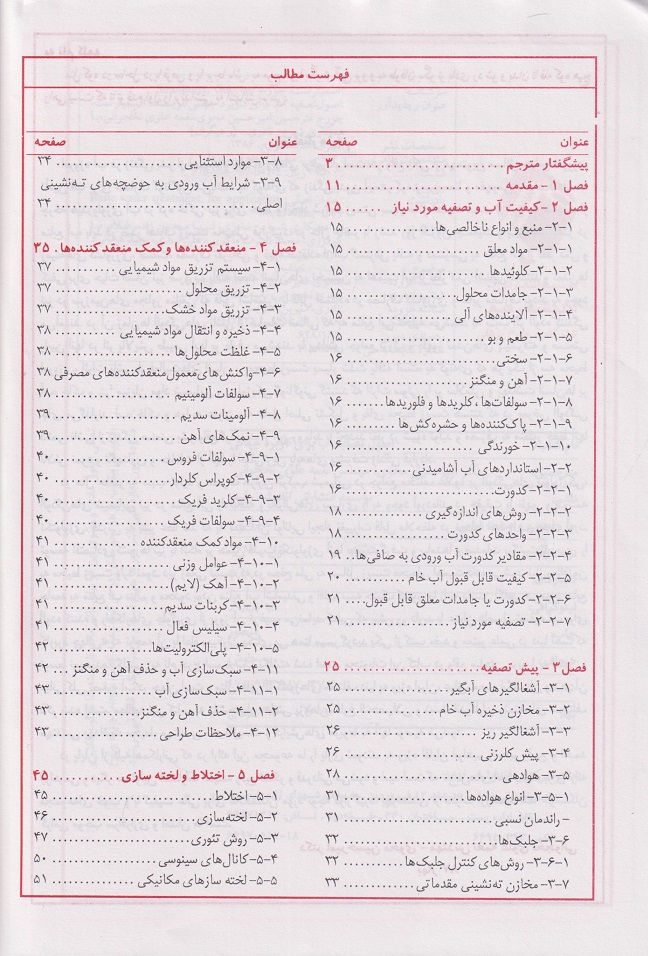 فهرست مطالب
عنوان صفحه
پیشگفتار مترجم ........................ ۳
فصل ۱- مقدمه ........................ ۱۱
فصل ۲- کیفیت آب و تصفیه مورد نیاز ...... ۱۵
۲-۱- منبع و انواع ناخالصی‌ها .............. ۱۵
۲-۱-۱- مواد معلق ..................... ۱۵
۲-۱-۲- کلوئیدها ..................... ۱۵
۲-۱-۳- جامدات محلول ................. ۱۵
۲-۱-۴- آلاینده‌های آلی ................. ۱۵
۲-۱-۵- طعم و بو ..................... ۱۵
۲-۱-۶- سختی ....................... ۱۶
۲-۱-۷- آهن و منگنز ................... ۱۶
۲-۱-۸- سولفات‌ها، کلریدها و فلوریدها ....... ۱۶
۲-۱-۹- پاک‌کننده‌ها و حشره‌کش‌ها ......... ۱۶
۲-۱-۱۰- خورندگی .................... ۱۶
۲-۲- استانداردهای آب آشامیدنی .......... ۱۶
۲-۲-۱- کدورت ...................... ۱۶
۲-۲-۲- روش‌های اندازه‌گیری ............. ۱۸
۲-۲-۳- واحدهای کدورت ............... ۱۸
۲-۲-۴- مقادیر کدورت آب ورودی به صافی‌ها .. ۱۹
۲-۲-۵- کیفیت قابل قبول آب خام .......... ۲۰
۲-۲-۶- کدورت یا جامدات معلق قابل قبول .... ۲۱
۲-۲-۷- تصفیه مورد نیاز ................ ۲۱
فصل ۳- پیش تصفیه .................... ۲۵
۳-۱- آشغالگیرهای آبگیر ................ ۲۵
۳-۲- مخازن ذخیره آب خام .............. ۲۵
۳-۳- آشغالگیر ریز .................... ۲۶
۳-۴- پیش کلرزنی .................... ۲۶
۳-۵- هوادهی ....................... ۲۸
۳-۵-۱- انواع هواده‌ها .................. ۳۱
- راندمان نسبی ...................... ۳۱
۳-۶- جلبک‌ها ....................... ۳۲
۳-۶-۱- روش‌های کنترل جلبک‌ها .......... ۳۲
۳-۷- مخازن ته‌نشینی مقدماتی ............ ۳۳
عنوان صفحه
۳-۸- موارد استثنایی ................... ۳۴
۳-۹- شرایط آب ورودی به حوضچه‌های ته‌نشینی
اصلی ............................ ۳۴
فصل ۴- منعقدکننده‌ها و کمک منعقدکننده‌ها . ۳۵
۴-۱- سیستم تزریق مواد شیمیایی .......... ۳۷
۴-۲- تزریق محلول .................... ۳۷
۴-۳- تزریق مواد خشک ................. ۳۷
۴-۴- ذخیره و انتقال مواد شیمیایی ......... ۳۸
۴-۵- غلظت محلول‌ها .................. ۳۸
۴-۶- واکنش‌های معمول منعقدکننده‌های مصرفی ۳۸
۴-۷- سولفات آلومینیم ................. ۳۸
۴-۸- آلومینات سدیم .................. ۳۹
۴-۹- نمک‌های آهن ................... ۳۹
۴-۹-۱- سولفات فروس ................. ۴۰
۴-۹-۲- کوپراس کلردار ................. ۴۰
۴-۹-۳- کلرید فریک ................... ۴۰
۴-۹-۴- سولفات فریک ................. ۴۰
۴-۱۰- مواد کمک منعقدکننده ............ ۴۱
۴-۱۰-۱- عوامل وزنی .................. ۴۱
۴-۱۰-۲- آهک (لایم) .................. ۴۱
۴-۱۰-۳- کربنات سدیم ................ ۴۱
۴-۱۰-۴- سیلیس فعال ................. ۴۱
۴-۱۰-۵- پلی‌الکترولیت‌ها .............. ۴۲
۴-۱۱- سبک‌سازی آب و حذف آهن و منگنز ... ۴۲
۴-۱۱-۱- سبک‌سازی آب ............... ۴۳
۴-۱۱-۲- حذف آهن و منگنز ............. ۴۳
۴-۱۲- ملاحظات طراحی ................ ۴۳
فصل ۵- اختلاط و لخته سازی ........... ۴۵
۵-۱- اختلاط ........................ ۴۵
۵-۲- لخته‌سازی ..................... ۴۶
۵-۳- روش تئوری .................... ۴۷
۵-۴- کانال‌های سینوسی ................ ۵۰
۵-۵- لخته سازهای مکانیکی ............. ۵۱